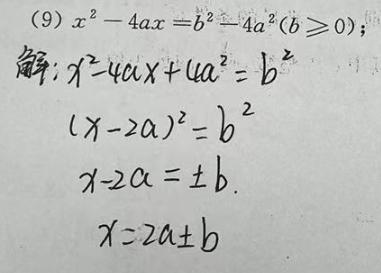 (9) x² − 4ax = b² − 4a² (b ⩾ 0);
解: x²−4ax+4a² = b²
(x−2a)² = b²
x−2a = ±b.
x=2a±b